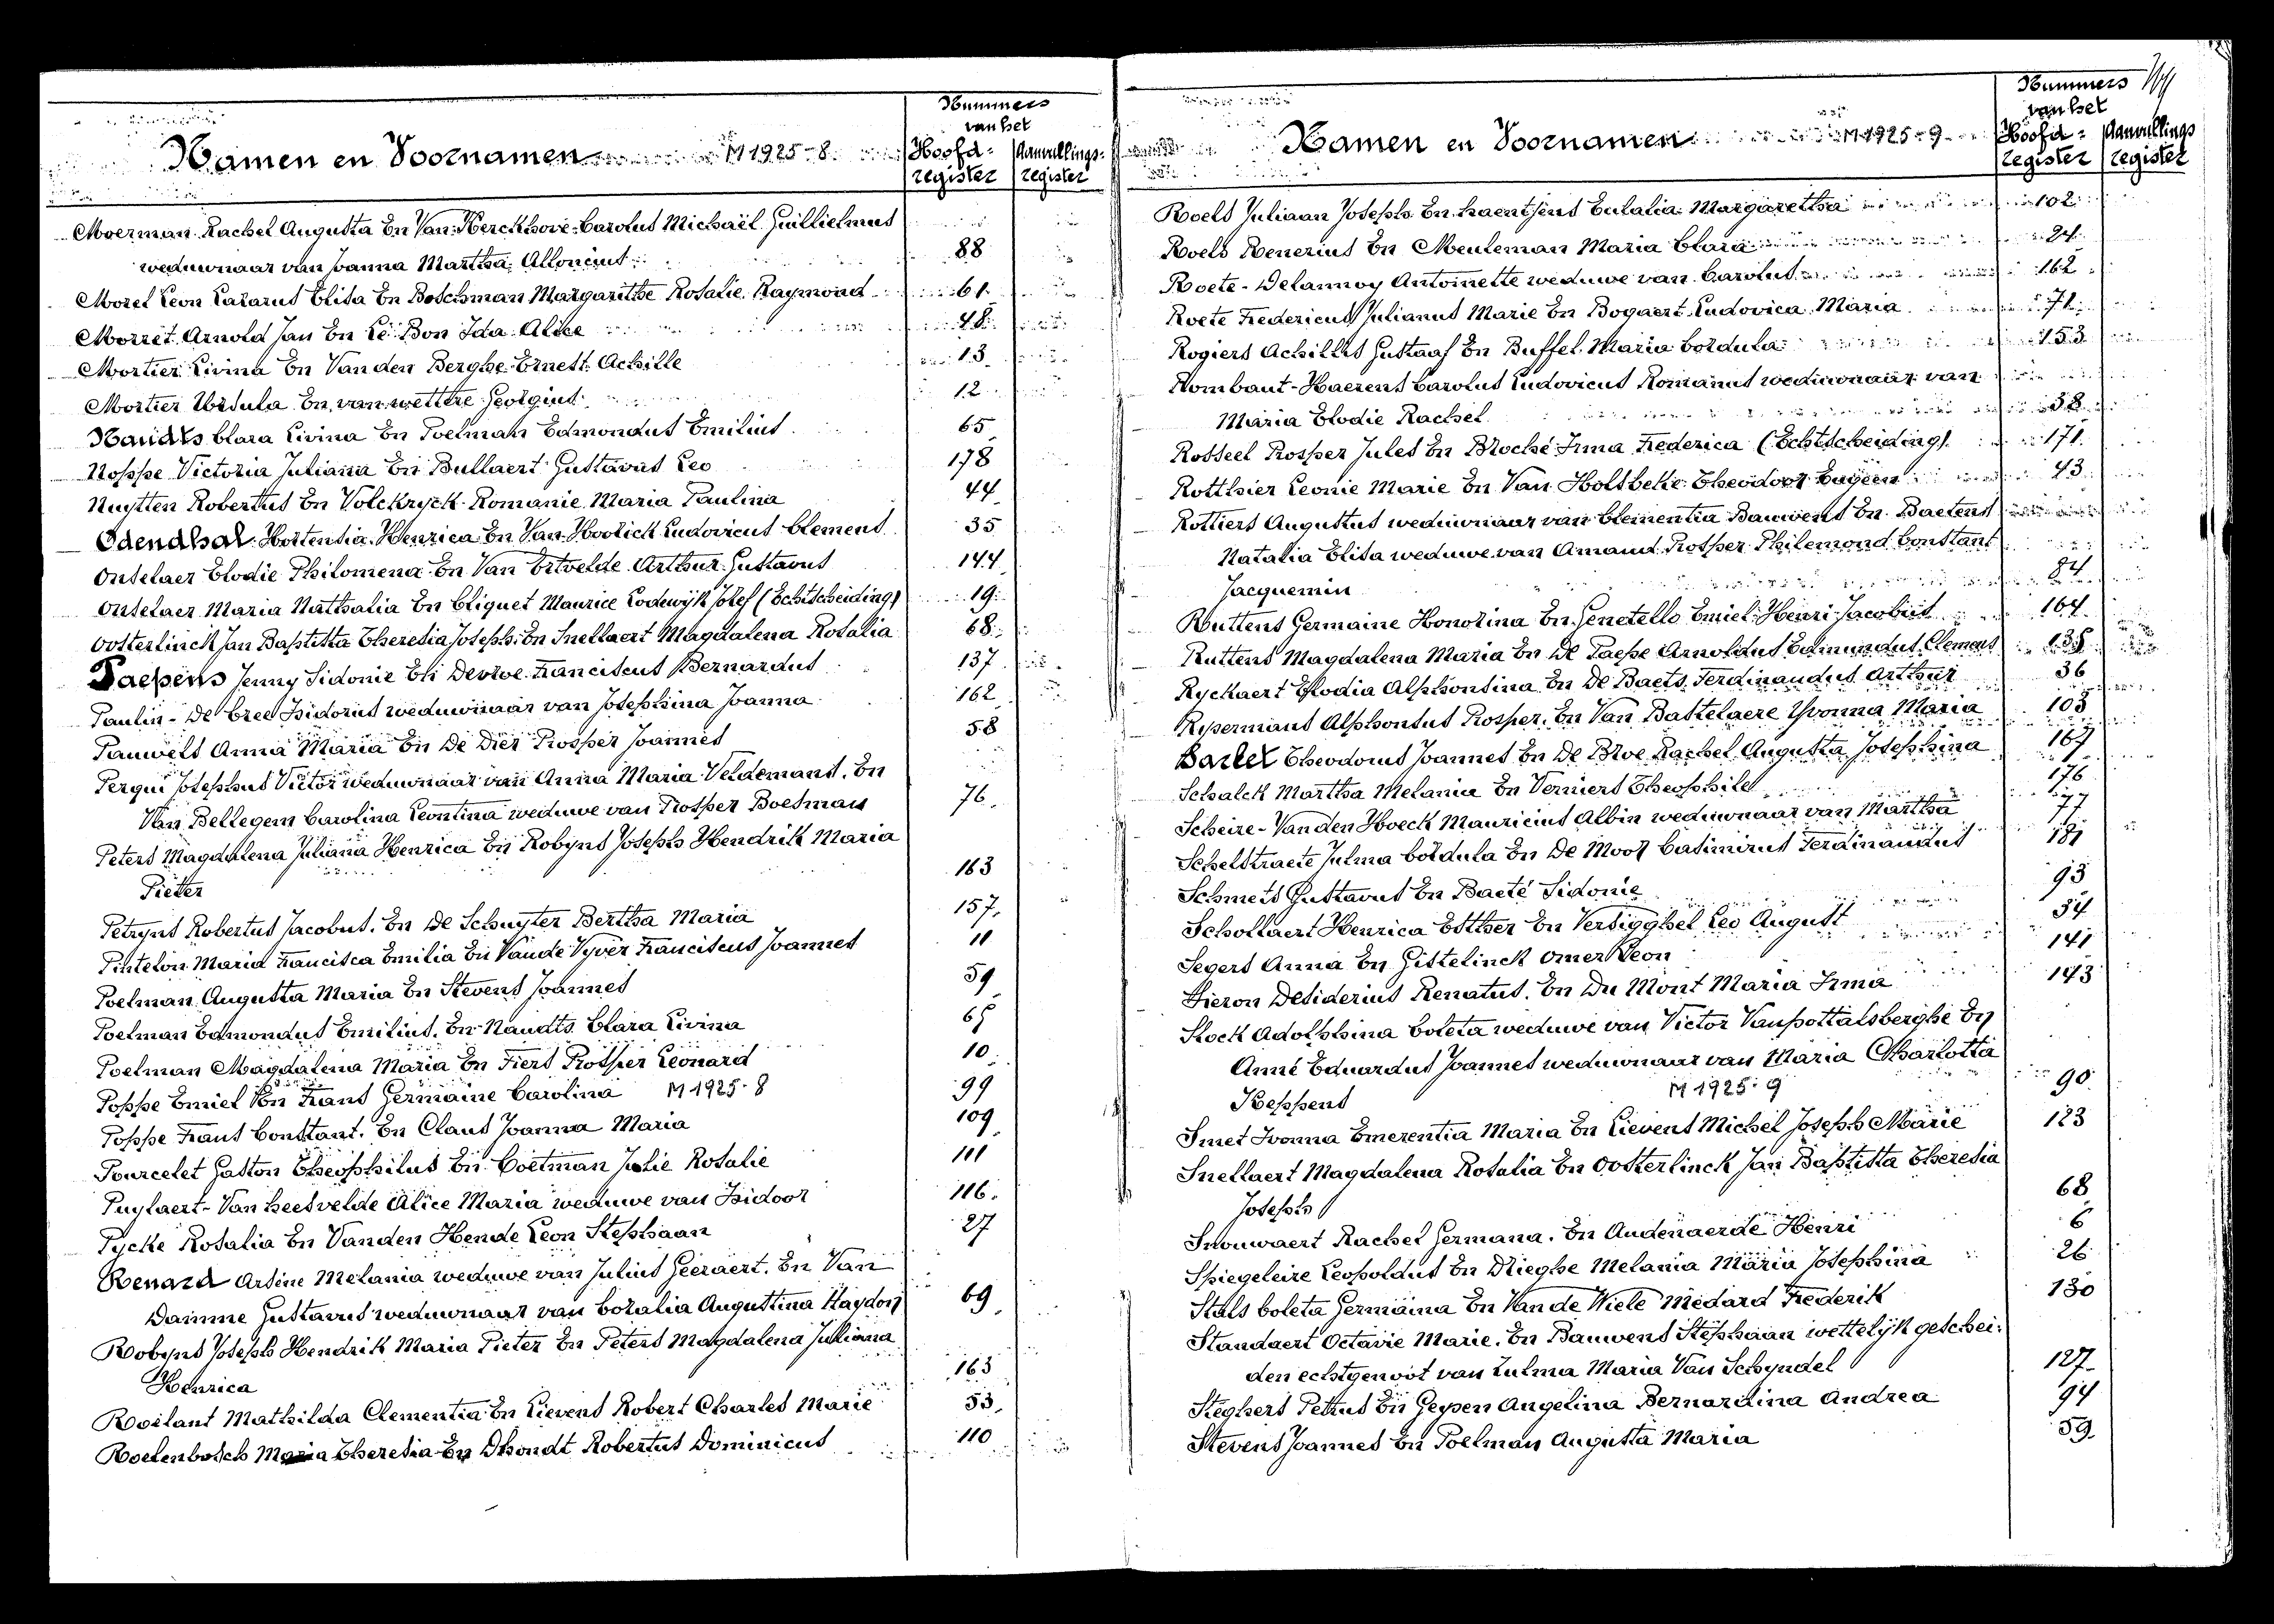 Nummers
van het
Namen en Voornamen M 1925-8 Hoofd= Aanvullings=
register register
Moerman Rachel Augusta En Van Kerckhove Carolus Michaël Guillielmus
weduwnaar van Joanna Martha Alloncius 88
Morel Leon Lazarus Elisa En Boschman Margarithe Rosalie Raymond 61
Morret Arnold Jan En Le Bon Ida Alice 48
Mortier Livina En Van den Berghe Ernest Achille 13
Mortier Ursula En van wettere Georgius 12
Naudts Clara Livina En Poelman Edmondus Emilius 65
Noppe Victoria Juliana En Bullaert Gustavus Leo 178
Nuytten Robertus En Volckryck Romanie Maria Paulina 44
Odendhal Hortensia Henrica En Van Hoorick Ludovicus Clemens 35
Onselaer Elodie Philomena En Van Ertvelde Arthur Gustavus 144
Onselaer Maria Nathalia En Cliquet Maurice Lodewijk Josef (Echtscheiding) 19
Oosterlinck Jan Baptista Theresia Joseph En Snellaert Magdalena Rosalia 68
Paepens Jenny Sidonie En Devroe Franciscus Bernardus 137
Paulin - De Cree Isidorus weduwnaar van Josephina Joanna 162
Pauwels Anna Maria En De Dier Prosper Joannes 58
Perqui Josephus Victor weduwnaar van Anna Maria Veldemans. En
Van Bellegem Carolina Leontina weduwe van Prosper Boesman 76
Peters Magdalena Juliana Henrica En Robyns Joseph Hendrik Maria
Pieter 163
Petryns Robertus Jacobus. En De Schuyter Bertha Maria 157
Pintelon Maria Francisca Emilia En Van de Vyver Franciscus Joannes 11
Poelman Augusta Maria En Stevens Joannes 59
Poelman Edmondus Emilius. En Naudts Clara Livina 65
Poelman Magdalena Maria En Fiers Prosper Leonard 10
Poppe Emiel En Frans Germaine Carolina M 1925-8 99
Poppe Frans Constant. En Claus Joanna Maria 109
Pourcelet Gaston Theophilus En Coetman Julie Rosalie 111
Puylaert - Van heesvelde Alice Maria weduwe van Isidoor 116
Pycke Rosalia En Vanden Hende Leon Stephaan 27
Renard Arsène Melania weduwe van Julius Geeraert. En Van
Damme Gustavus weduwnaar van Coralia Augustina Haydon 69
Robyns Joseph Hendrik Maria Pieter En Peters Magdalena Juliana
Henrica 163
Roelant Mathilda Clementia En Lievens Robert Charles Marie 53
Roelenbosch Maria Theresia En Dhondt Robertus Dominicus 110
Nummers
van het
Namen en Voornamen M 1925-9 Hoofd= Aanvullings
register register
Roels Juliaan Joseph En haentjens Eulalia Margaretha 102
Roels Renerius En Meuleman Maria Clara 24
Roete - Delannoy Antoinette weduwe van Carolus 162
Roete Fredericus Julianus Marie En Bogaert Ludovica Maria 71
Rogiers Achilles Gustaaf En Buffel Maria Cordula 153
Rombaut - Haerens Carolus Ludovicus Romanus weduwnaar van
Maria Elodie Rachel 38
Rosseel Prosper Jules En Broché Irma Frederica (Echtscheiding) 171
Rotthier Leonie Marie En Van Holsbeke Theodoor Eugeen 43
Rottiers Augustus weduwnaar van Clementia Bauwens En Baetens
Natalia Elisa weduwe van Amand Prosper Philemond Constant
Jacquemin 84
Ruttens Germaine Honorina En Genetello Emiel Henri Jacobus 164
Ruttens Magdalena Maria En De Paepe Arnoldus Edmundus Clemens 135
Ryckaert Elodia Alphonsina En De Baets Ferdinandus Arthur 36
Rysermans Alphonsus Prosper. En Van Bastelaere Yvonna Maria 105
Sarlet Theodorus Joannes En De Broe Rachel Augusta Josephina 167
Schalck Martha Melania En Verniers Theophile 176
Scheire - Van den Hoeck Mauricius Albin weduwnaar van Martha 77
Schelstraete Julma Cordula En De Moor Casimirus Ferdinandus 181
Schmets Gustavus En Baeté Sidonie 93
Schollaert Henrica Esther En Versigghel Leo August 34
Segers Anna En Gistelinck Omer Leon 141
Sieron Desiderius Renatus. En Du Mont Maria Irma 143
Slock Adolphina Coleta weduwe van Victor Vanpottalsberghe En
Anné Eduardus Joannes weduwnaar van Maria Charlotta
Keppens M 1925-9 90
Smet Ivonna Emerentia Maria En Lievens Michel Joseph Marie 123
Snellaert Magdalena Rosalia En Oosterlinck Jan Baptista Theresia
Joseph 68
Snouwaert Rachel Germana. En Audenaerde Henri 6
Spiegeleire Leopoldus En Drieghe Melania Maria Josephina 26
Stals Coleta Germaina En Van de Wiele Médard Frederik 130
Standaert Octavie Marie. En Bauwens Stephaan wettelijk geschei=
den echtgenoot van Zulma Maria Van Schyndel 127
Steghers Petrus En Geysen Angelina Bernardina Andrea 94
Stevens Joannes En Poelman Augusta Maria 59